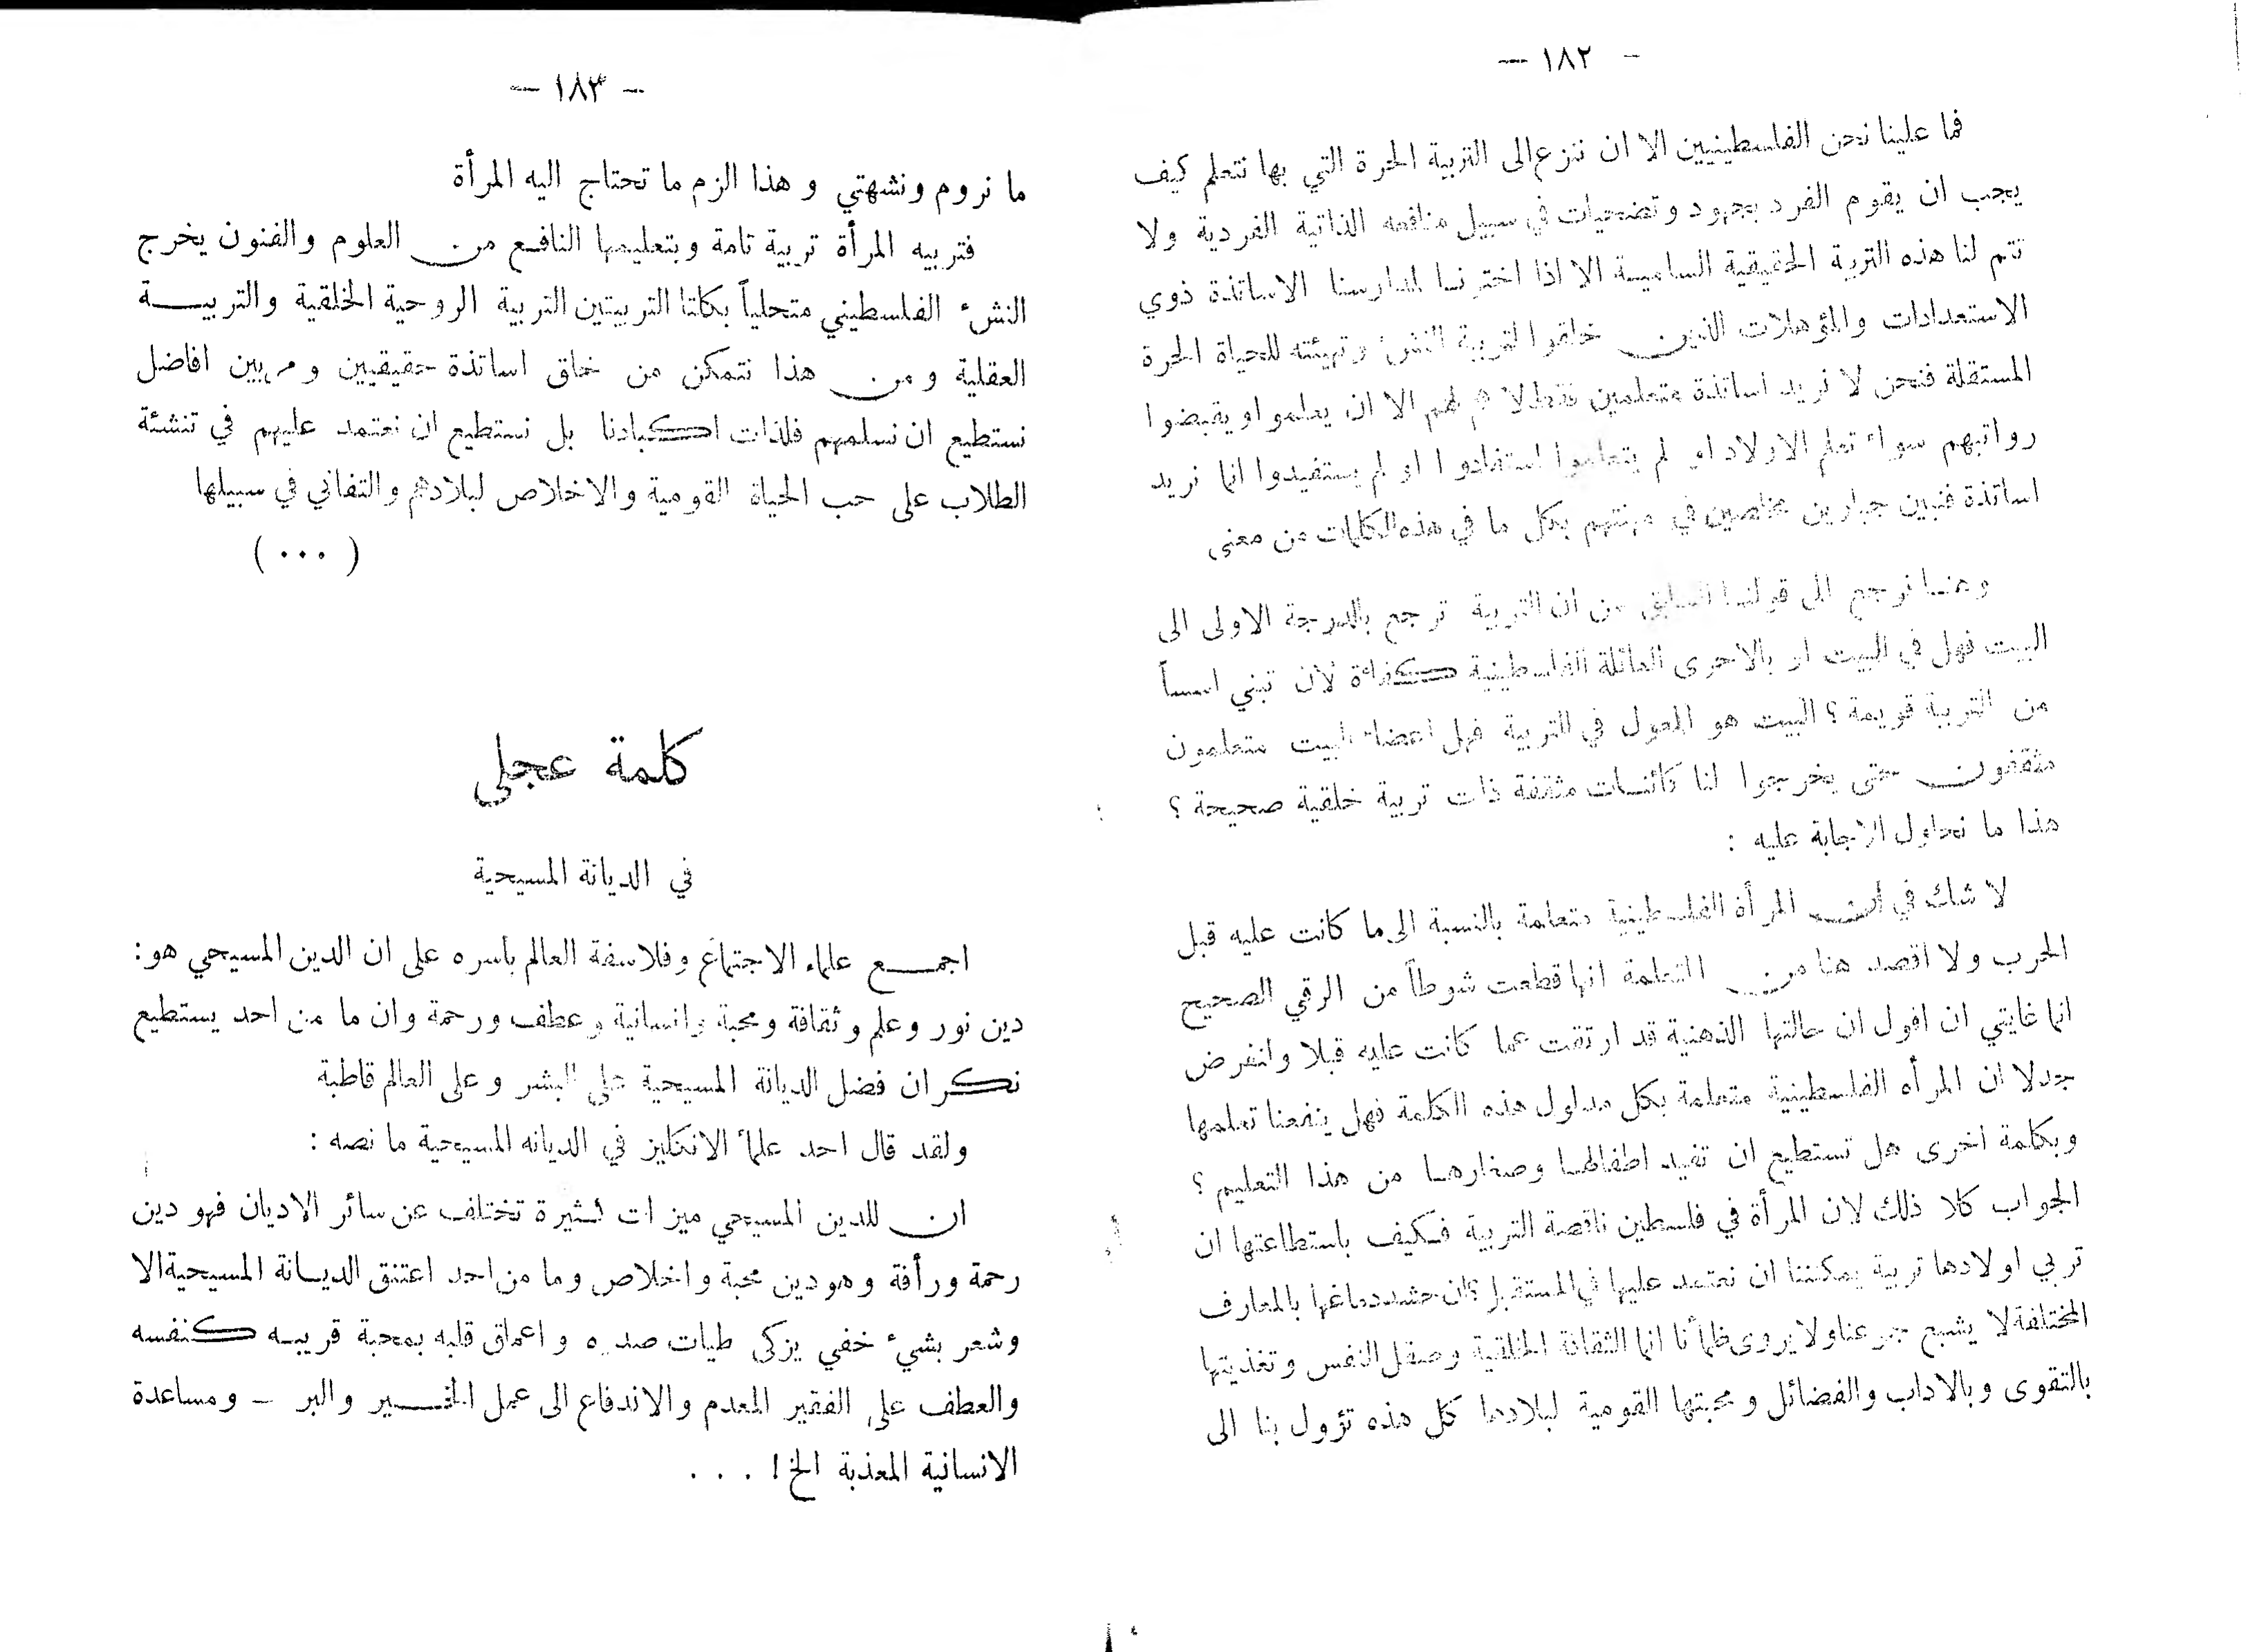 - ١٨٢ -
فما علينا نحن الفلسطينيين الا ان ننزع الى التربية الحرة التي بها نتعلم كيف
يجب ان يقوم الفرد بجهود وتضحيات في سبيل منافعه الذاتية الفردية ولا
تتم لنا هذه التربية الحقيقية السامية الا اذا اخترنا لمدارسنا الاساتذة ذوي
الاستعدادات والمؤهلات الذين خلقوا لتربية النشء وتهيئته للحياة الحرة
المستقلة فنحن لا نريد اساتذة متعلمين فقط لا هم لهم الا ان يعلموا ويقبضوا
رواتبهم سواء تعلم الاولاد او لم يتعلموا استفادوا او لم يستفيدوا انما نريد
اساتذة فنيين جبارين مخلصين في مهنتهم بكل ما في هذه الكلمات من معنى
وهنا نرجع الى قولنا السابق من ان التربية ترجع بالدرجة الاولى الى
البيت فهل في البيت او بالاحرى العائلة الفلسطينية ككفاءة لان تبني اسساً
من التربية قويمة ؟ البيت هو المعول في التربية فهل اعضاء البيت متعلمون
مثقفون حتى يخرجوا لنا كائنات مثقفة ذات تربية خلقية صحيحة ؟
هذا ما نحاول الاجابة عليه :
لا شك في ان المرأة الفلسطينية متعلمة بالنسبة الى ما كانت عليه قبل
الحرب ولا اقصد هنا من المتعلمة انها قطعت شوطاً من الرقي الصحيح
انما غايتي ان اقول ان حالتها الذهنية قد ارتقت عما كانت عليه قبلا ولنفرض
جدلا ان المرأه الفلسطينية متعلمة بكل مدلول هذه الكلمة فهل ينفعنا تعلمها
وبكلمة اخرى هل تستطيع ان تفيد اطفالها وصغارها من هذا التعليم ؟
الجواب كلا ذلك لان المرأة في فلسطين ناقصة التربية فكيف باستطاعتها ان
تربي اولادها تربية يمكننا ان نعتمد عليها في المستقبل ؟ان حشد دماغها بالمعارف
المختلفة لا يشبع جوعنا ولا يروى ظمأنا انما الثقافة الخلقية وصقل النفس وتغذيتها
بالتقوى وبالاداب والفضائل ومحبتها القومية لبلادها كل هذه تؤول بنا الى
- ١٨٣ -
ما نروم ونشهتي وهذا الزم ما تحتاج اليه المرأة
فتربيه المرأة تربية تامة وبتعليمها النافع من العلوم والفنون يخرج
النشء الفلسطيني متحلياً بكلتا التربيتين التربية الروحية الخلقية والتربية
العقلية ومن هذا نتمكن من خلق اساتذة حقيقيين ومربين افاضل
نستطيع ان نسلمهم فلذات اكبادنا بل نستطيع ان نعتمد عليهم في تنشئة
الطلاب على حب الحياة القومية والاخلاص لبلادهم والتفاني في سبيلها
( ٠٠٠ )
كلمة عجلى
في الديانة المسيحية
اجمع علماء الاجتماع وفلاسفة العالم بأسره على ان الدين المسيحي هو :
دين نور وعلم وثقافة ومحبة وانسانية وعطف ورحمة وان ما من احد يستطيع
نكران فضل الديانة المسيحية على البشر وعلى العالم قاطبة
ولقد قال احد علمأ الانكليز في الديانه المسيحية ما نصه :
ان للدين المسيحي ميزات كثيرة تختلف عن سائر الاديان فهو دين
رحمة ورأفة وهو دين محبة واخلاص وما من احد اعتنق الديانة المسيحية الا
وشعر بشيء خفي يزكى طيات صدره واعماق قلبه بمحبة قريبه كنفسه
والعطف على الفقير المعدم والاندفاع الى عمل الخير والبر - ومساعدة
الانسانية المعذبة الخ ! . . .